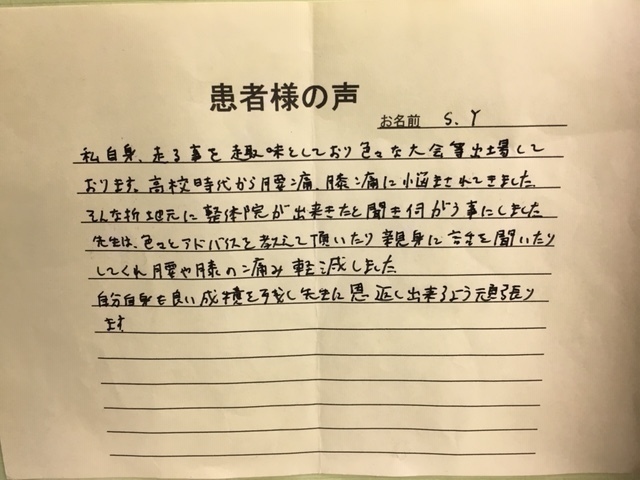 患者様の声
お名前 S.Y
私自身、走る事を趣味としており色々な大会等出場して
おります。高校時代から腰痛、膝痛に悩まされてきました
そんな折地元に整体院が出来きたと聞き伺がう事にしました
先生は、色々とアドバイスを教えて頂いたり親身に話を聞いたり
してくれ腰や膝の痛み軽減しました
自分自身も良い成積を残し先生に恩返し出来るよう頑張り
ます